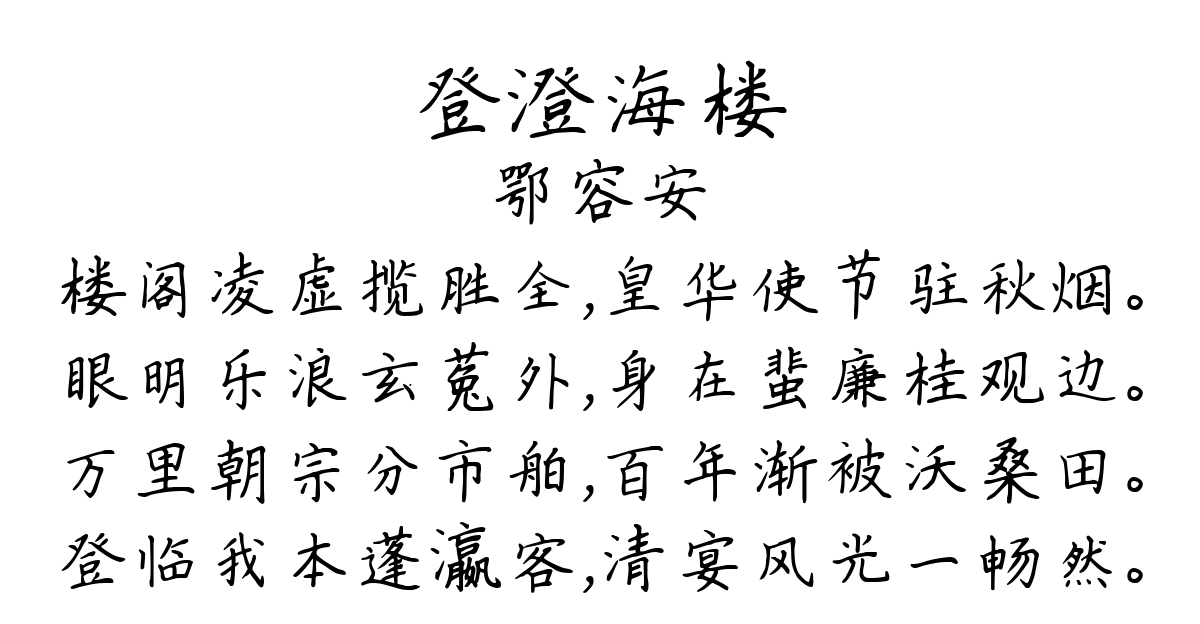 登澄海楼
鄂容安
楼阁凌虚揽胜全,皇华使节驻秋烟。
眼明乐浪玄菟外,身在蜚廉桂观边。
万里朝宗分市舶,百年渐被沃桑田。
登临我本蓬瀛客,清宴风光一畅然。